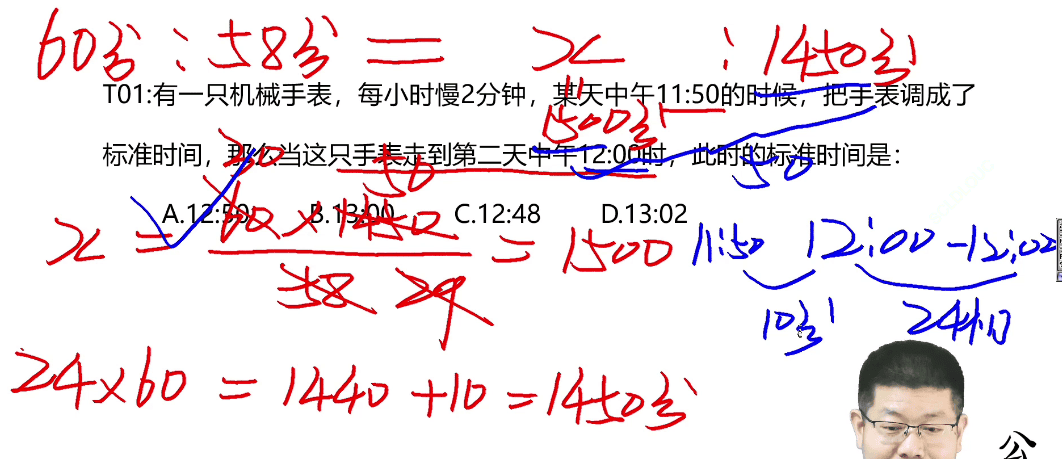 60分:58分=x:1450分
T01:有一只机械手表，每小时慢2分钟，某天中午11:50的时候，把手表调成了
1500分
标准时间，那么当这只手表走到第二天中午12:00时，此时的标准时间是：
30 50 50
A.12:50 B.13:00 C.12:48 D.13:02
x = 60×1450 = 1500 11:50 12:00-12:00
58 29
10分 24小时
24×60=1440+10=1450分
公